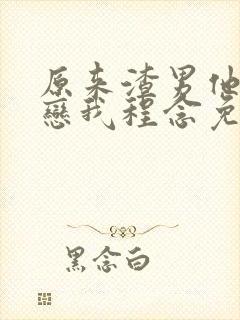 原来渣男他
戀我程念免
黑念白